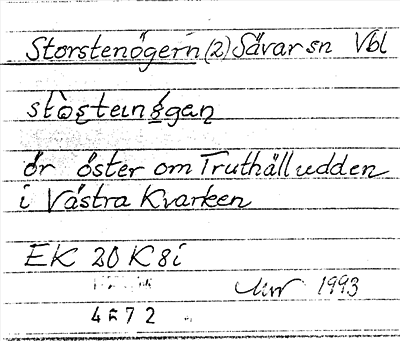 Storstenögern (2) Sävar sn Vbl
stòsteinǿgan
ör öster om Truthälludden
i Västra Kvarken
EK 20 K 8i
1993
4672